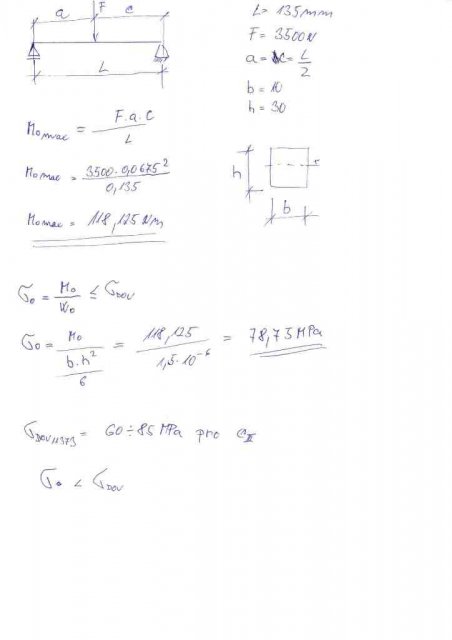 a F c
L
L = 135mm
F = 3500N
a = c = L/2
b = 10
h = 30
Momax = F.a.c / L
Momax = 3500.0,0675² / 0,135
Momax = 118,125 Nm
h
b
σo = Mo / Wo ≤ σDOV
σo = Mo / (b.h² / 6) = 118,125 / 1,5.10⁻⁶ = 78,75 MPa
σDOV11373 = 60 ÷ 85 MPa pro cII
σo < σDOV